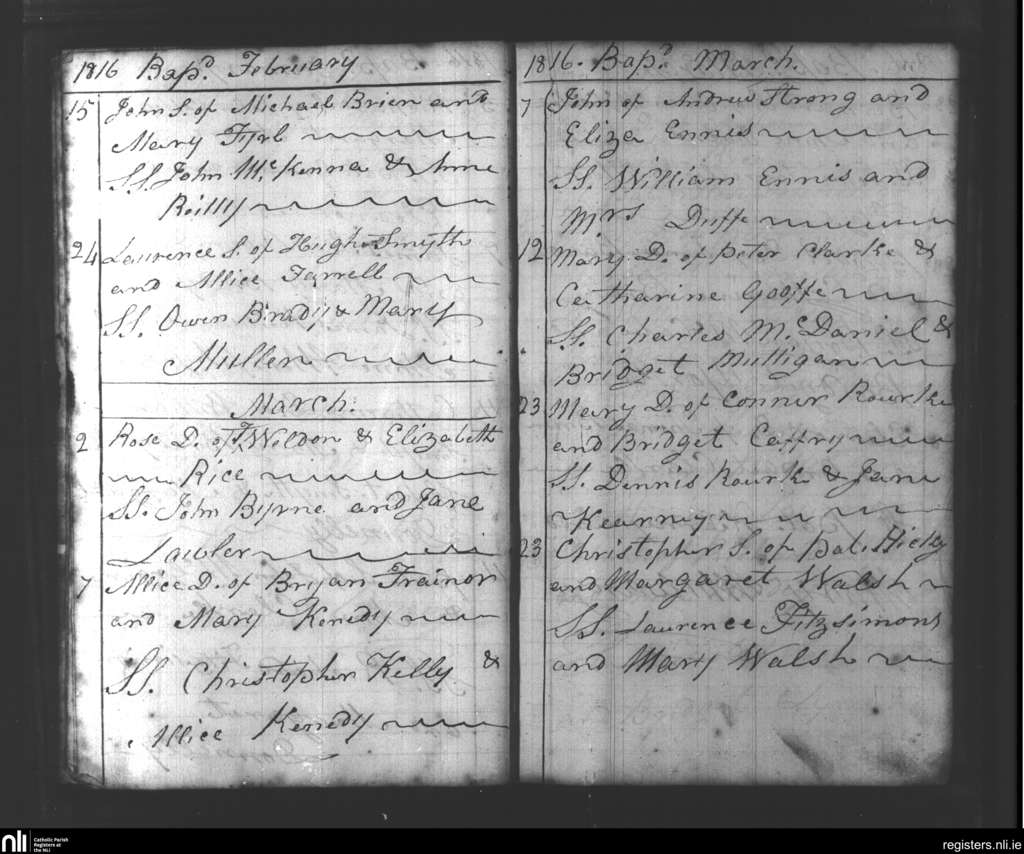 1816 Bapd. February
15 John S. of Michael Brien and
Mary Tyrl
SS. John Mc. Kenna & Anne
Reilly
24 Laurence S. of Hugh Smyth
and Allice Farrell
SS. Owen Brady & Mary
Mullen
March.
2 Rose D. of Weldon & Elizabeth
Rice
SS. John Byrne and Jane
Lawler
7 Allice D. of Bryan Trainor
and Mary Kenedy
SS. Christopher Kelly &
Allice Kenedy
1816. Bapd. March.
7 John of Andrew Strong and
Eliza Ennis
SS. William Ennis and
Mrs Duffe
12 Mary D. of Peter Clarke &
Catharine
SS. Charles Mc. Daniel &
Bridget Mulligan
23 Mary D. of Connor Rourke
and Bridget Caffry
SS. Dennis Rourke & Jane
Kearney
23 Christopher S. of Pat. Hickey
and Margaret Walsh
SS. Laurence Fitzsimons
and Mary Walsh
nli Catholic Parish
Registers at
the NLI
registers.nli.ie